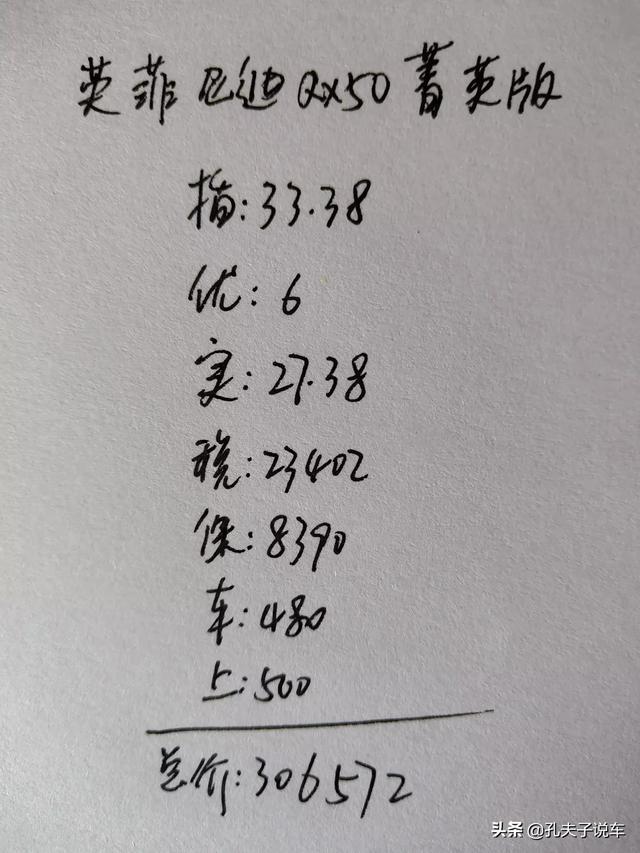 英菲尼迪QX50菁英版
指:33.38
优:6
实:27.38
税:23402
保:8390
车:480
上:500
总价:306572
头条 @孔夫子说车